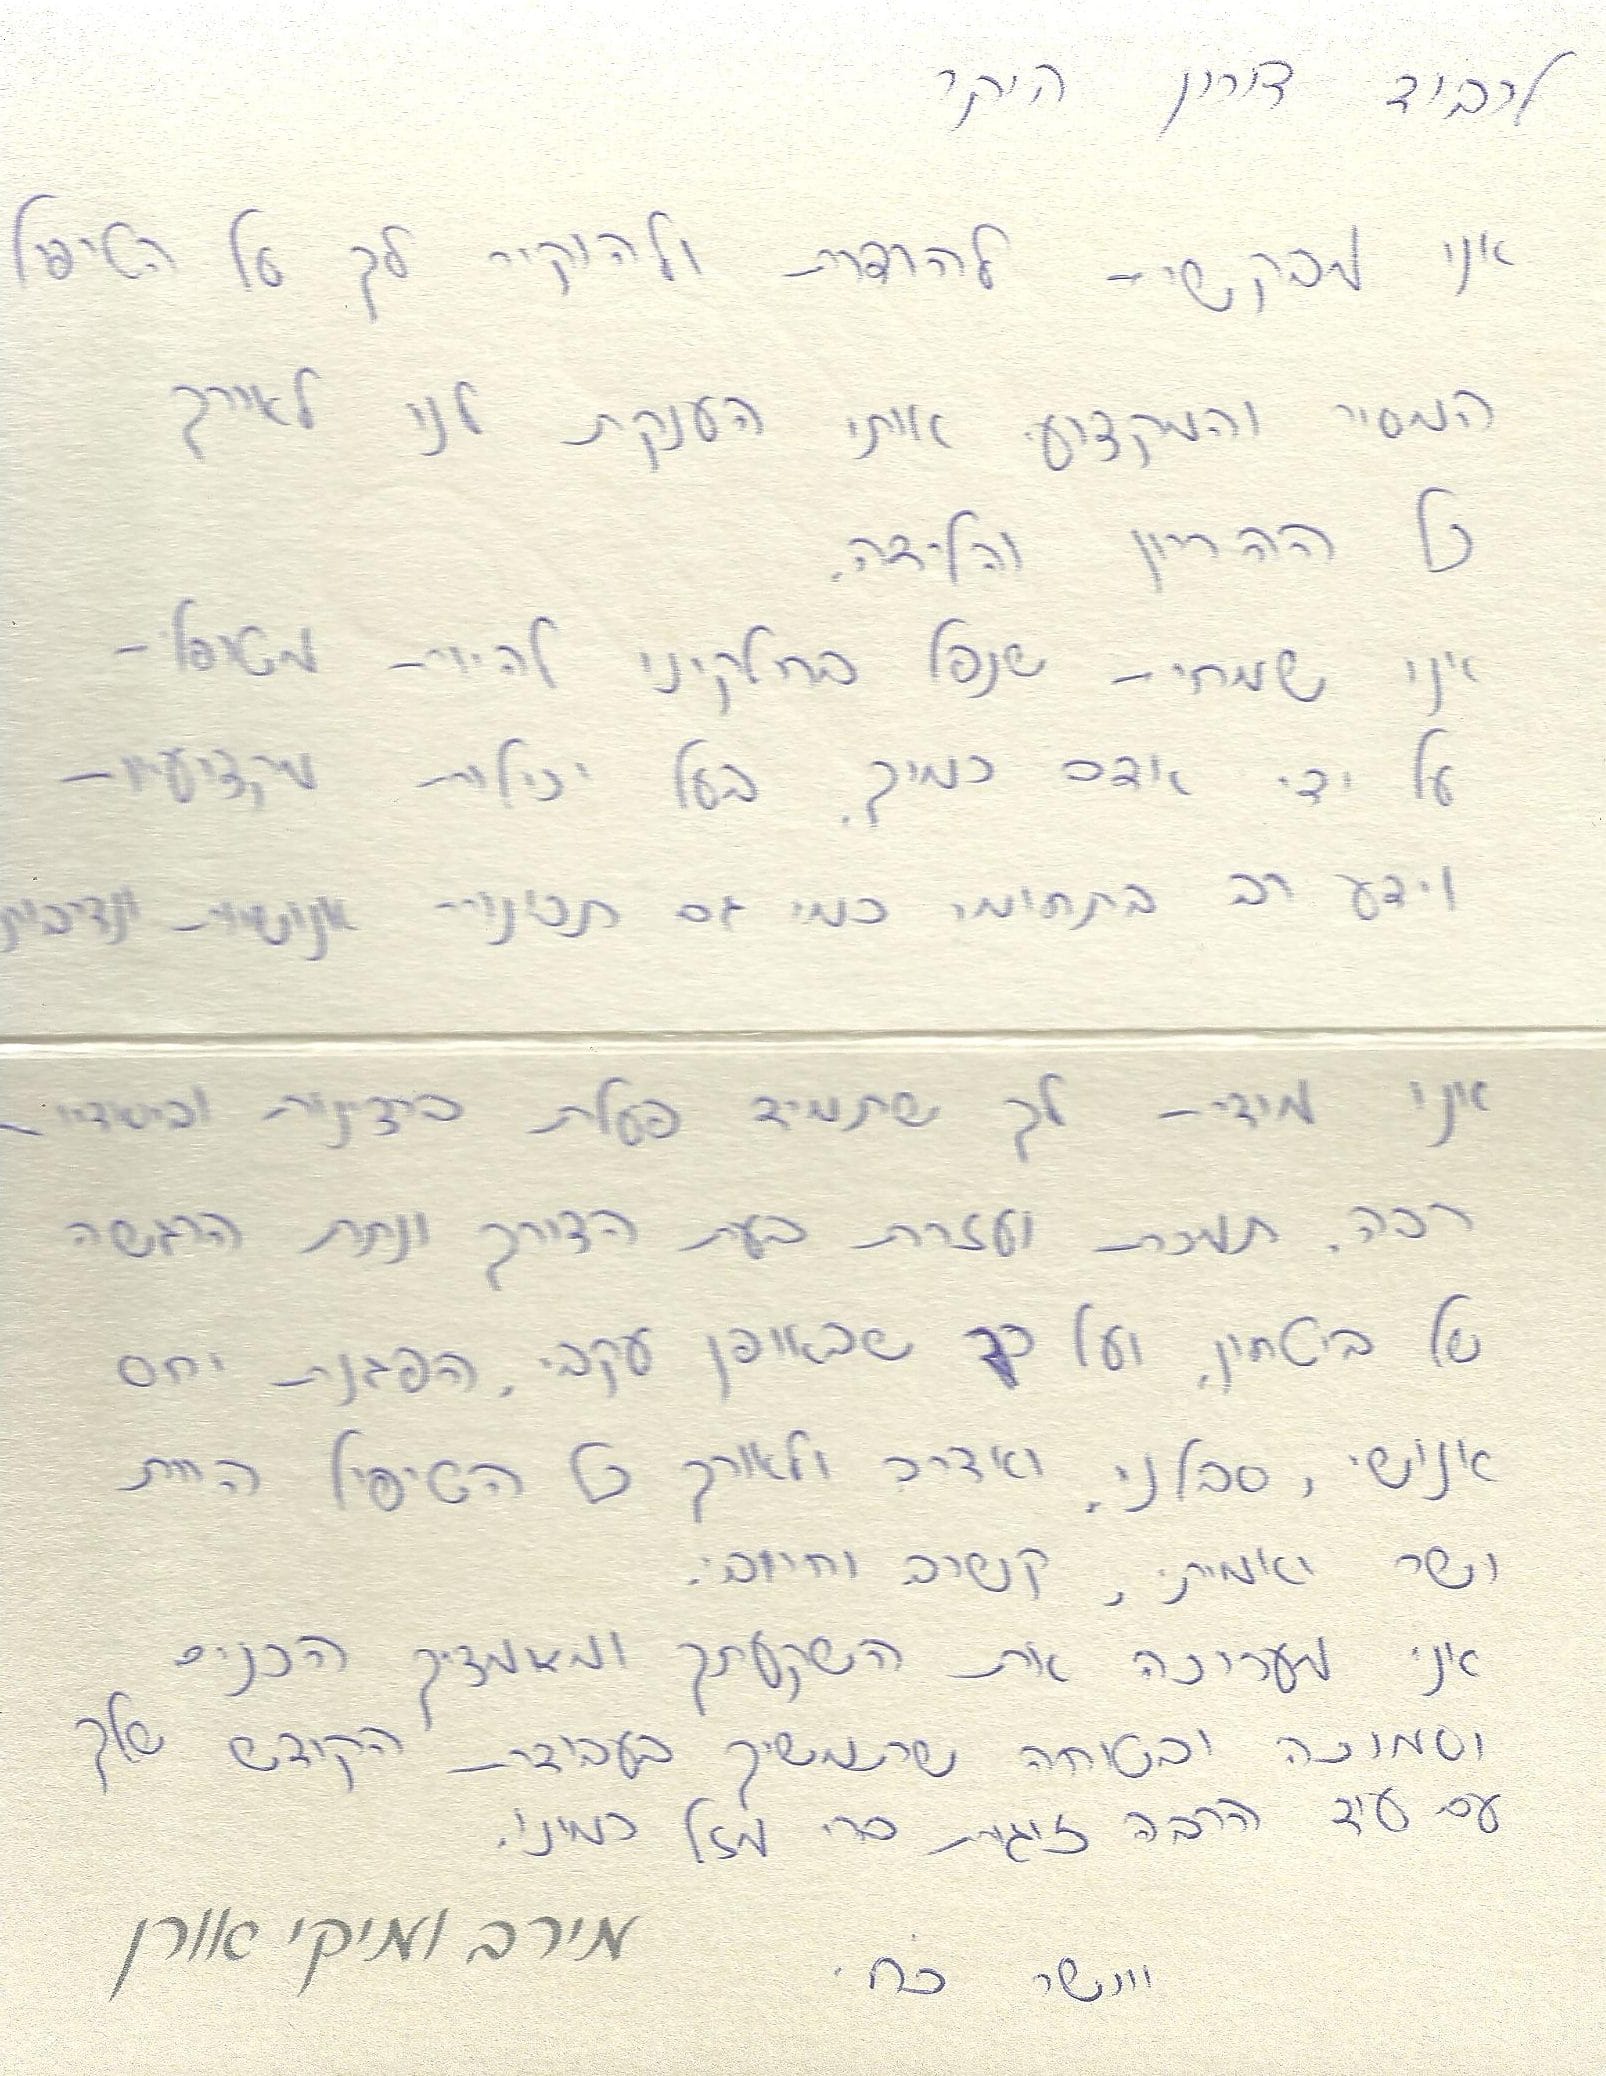 לכבוד דורון היקר
אני מבקשת להודות ולהוקיר לך על הטיפול
המסיר והמקצועי אותו הענקת לנו לאורך
כל ההריון והלידה.
אני שמחה שנפל בחלקינו להיות מטופלת
על ידי אדם כמוך, בעל יכולות מקצועיות
וידע רב בתחומו כמו גם תכונות אנושיות ונדיבות
אני מודה לך שתמיד פעלת ברצינות וביסודיות
רבה, תמכת ועזרת בעת הצורך ונתת הרגשה
של ביטחון, ועל כך שבאופן עקבי, הפגנת יחס
אנושי, סבלני, ואדיב ולאורך כל הטיפול היית
ישר ואמיתי, קשוב וחיובי.
אני מעריכה את השקעתך ומאמציך הכנים
וסמוכה ובטוחה שתמשיך בעבודת הקודש שלך
עם עוד הרבה זוגות ברי מזל כמונו.
ויישר כח.
מירב ומיקי אורן